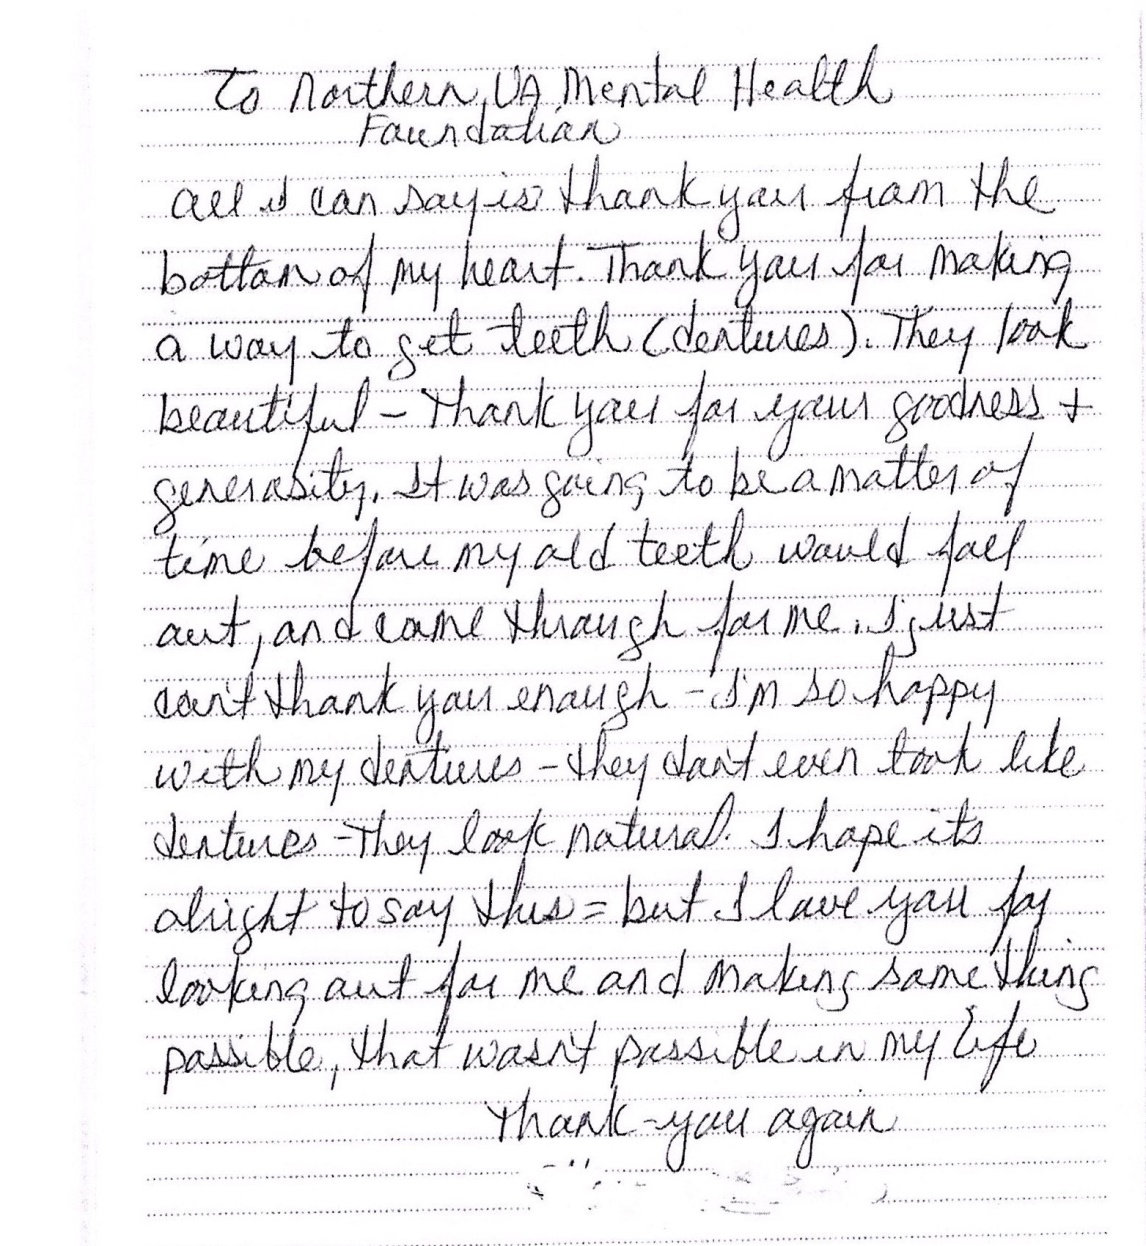 To Northern VA Mental Health
Foundation
All I can say is thank you from the
bottom of my heart. Thank you for making
a way to get teeth (dentures). They look
beautiful - Thank you for your goodness +
generosity. It was going to be a matter of
time before my old teeth would fall
out, and came through for me. I just
can't thank you enough - I'm so happy
with my dentures - they don't even look like
dentures - They look natural. I hope its
alright to say this = but I love you for
looking out for me and making some thing
possible, that wasn't possible in my life
Thank-you again